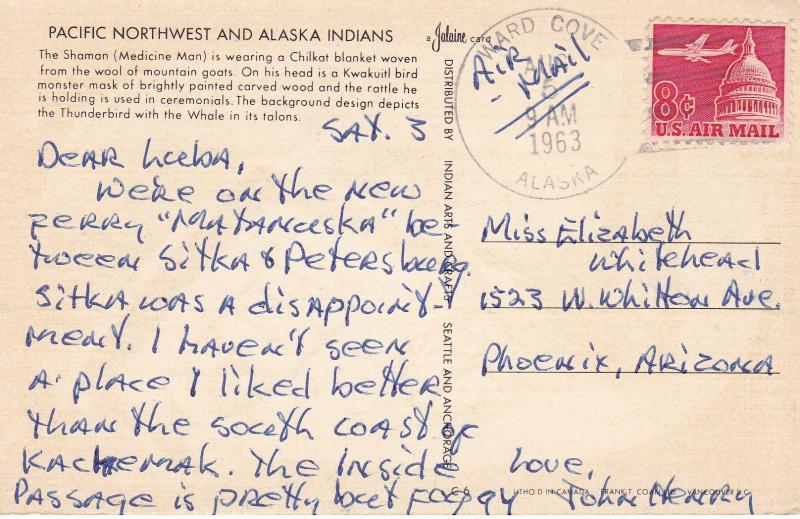 PACIFIC NORTHWEST AND ALASKA INDIANS
The Shaman (Medicine Man) is wearing a Chilkat blanket woven
from the wool of mountain goats. On his head is a Kwakuitl bird
monster mask of brightly painted carved wood and the rattle he
is holding is used in ceremonials. The background design depicts
the Thunderbird with the Whale in its talons.
a Jalaine card
DISTRIBUTED BY INDIAN ARTS AND CRAFTS SEATTLE AND ANCHORAGE
WARD COVE
5
9 AM
1963
ALASKA
AIR
- MAIL
8¢
U.S. AIR MAIL
SAT. 3
DEAR Luba,
WE'RE ON THE NEW
FERRY "MATANUSKA" BE-
TWEEN SITKA & PETERSBURG.
SITKA WAS A DISAPPOINT-
MENT. I HAVEN'T SEEN
A PLACE I LIKED BETTER
THAN THE SOUTH COAST OF
KACHEMAK. THE INSIDE
PASSAGE IS PRETTY BUT FOGGY
Love,
JOHN HENRY
Miss Elizabeth
Whitehead
1523 W. Whitton Ave.
Phoenix, Arizona
C-6
LITHO'D IN CANADA FRANK T. COAN LTD VANCOUVER B.C.